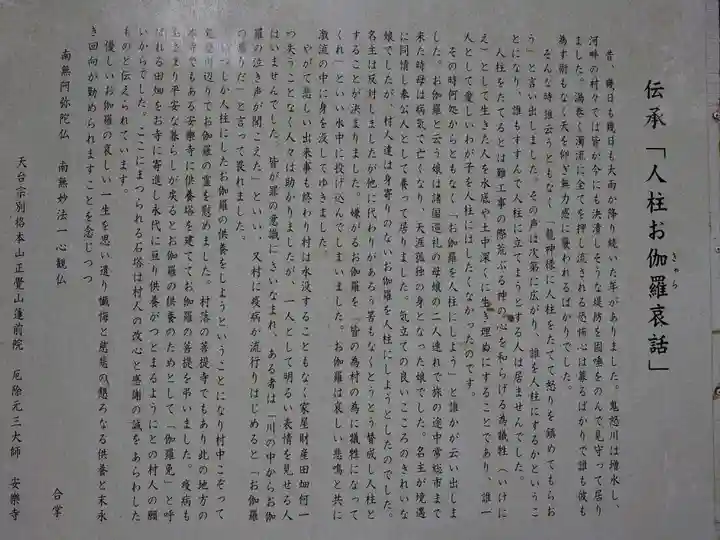 伝承「人柱お伽羅哀話」
きゃら
昔、幾日も幾日も大雨が降り続いた年がありました。鬼怒川は増水し、
河畔の村々では皆が今にも決潰しそうな堤防を固唾をのんで見守って居り
ました。渦巻く濁流に全てを押し流される恐怖心は募るばかりで誰も彼も
為す術もなく天を仰ぎ無力感に襲われるばかりでした。
そんな時誰云うともなく「龍神様に人柱をたてて怒りを鎮めてもらお
う」と言い出しました。その声は次第に広がり、誰を人柱にするかというこ
とになり、誰もすすんで人柱に立てようとする人は居ませんでした。
人柱をたてるとは難工事の際荒ぶる神の心を和らげる為犠牲（いけに
え）として生きた人を水底や土中深くに生き埋めにすることであり、誰一
人として愛しいわが子を人柱にはしたくなかったのです。
その時何処からともなく「お伽羅を人柱にしよう」と誰かが云い出しま
した。お伽羅と云う娘は諸国巡礼の母娘の二人連れで旅の途中常総市まで
来た時母は病気で亡くなり、天涯孤独の身となった娘でした。名主が境遇
に同情し奉公人として養って居りました。気立ての良いこころのきれいな
娘でしたが、村人達は身寄りのないお伽羅を人柱にしようとしたのでした。
名主は反対しましたが他に代わりがあろう筈もなくとうとう賛成し人柱と
することが決まりました。嫌がるお伽羅を「皆の為村の為に犠牲になって
くれ」といい水中に投げ込んでしまいました。お伽羅は哀しい悲鳴と共に
激流の中に身を没してゆきました。
やがて悲しい出来事も終わり村は水没することもなく家屋財産田畑何一
つ失うことなく人々は助かりましたが、一人として明るい表情を見せる人
はいませんでした。皆が罪の意識にさいなまれ、ある者は「川の中からお伽
羅の泣き声が聞こえた」といい、又村に疫病が流行りはじめると「お伽羅
の祟りだ」と言って畏れました。
いつしか人柱にしたお伽羅の供養をしようということになり村中こぞって
鬼怒川辺りでお伽羅の霊を慰めました。村落の菩提寺でもあり此の地方の
本寺でもある安樂寺に供養塔を建ててお伽羅の菩提を弔いました。疫病も
止まり平安な暮らしが戻るとお伽羅の供養のためとして「伽羅免」と呼
ばれる田畑をお寺に寄進し永代に亘り供養がつとまるようにとの村人の願
いからでした。ここにまつられる石塔は村人の改心と感謝の誠をあらわした
ものと伝えられています。
優しいお伽羅の哀しい一生を思い遣り懺悔と慈悲の懇ろなる供養と末永
き回向が勤められますことを念じつつ
合掌
南無阿弥陀仏　南無妙法一心観仏
天台宗別格本山正覺山蓮前院　厄除元三大師　安樂寺